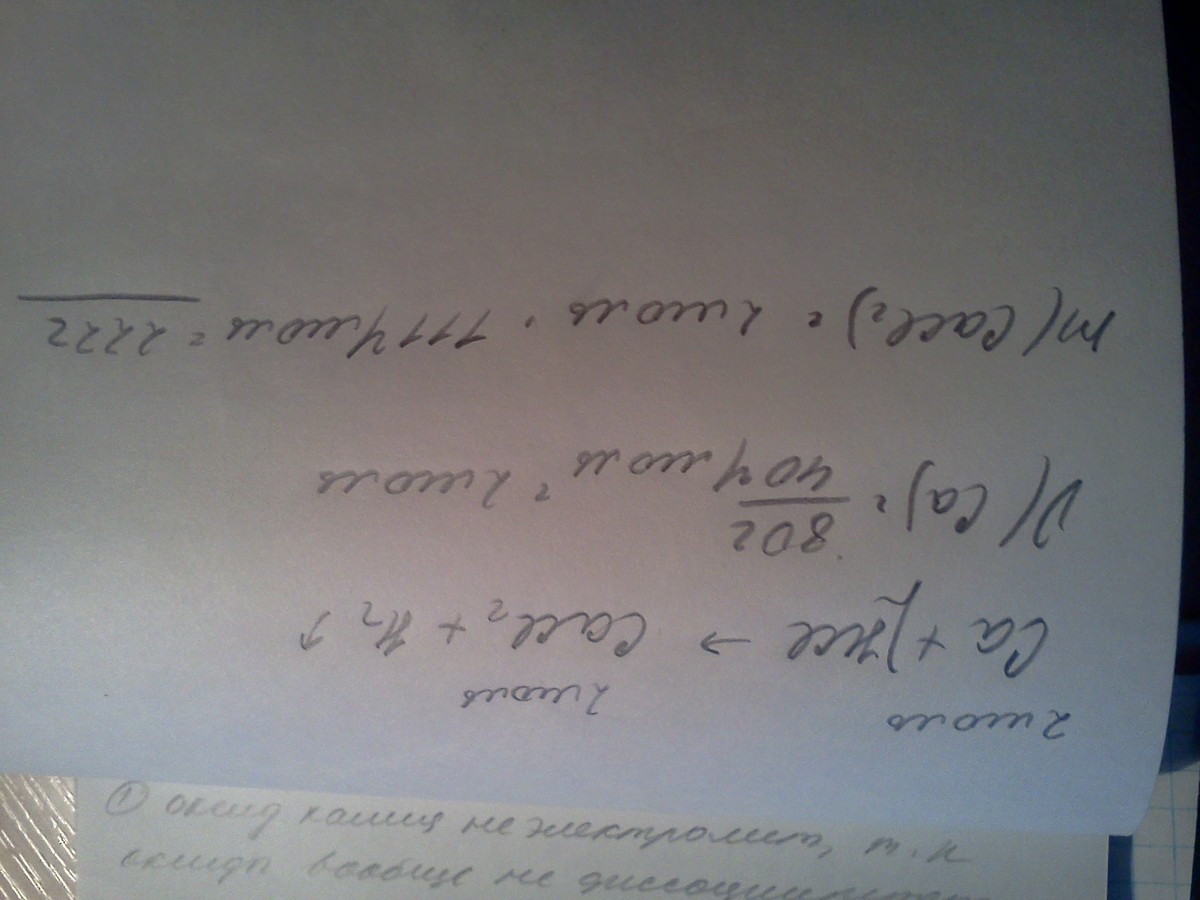 2 моль 2 моль
Ca + 2HCl → CaCl₂ + H₂ ↑
ν(Ca) = 80г / 40г/моль = 2 моль
m(CaCl₂) = 2 моль · 111г/моль = 222г
① оксид калия не электролит, т.к
оксиды вообще не диссоциируют